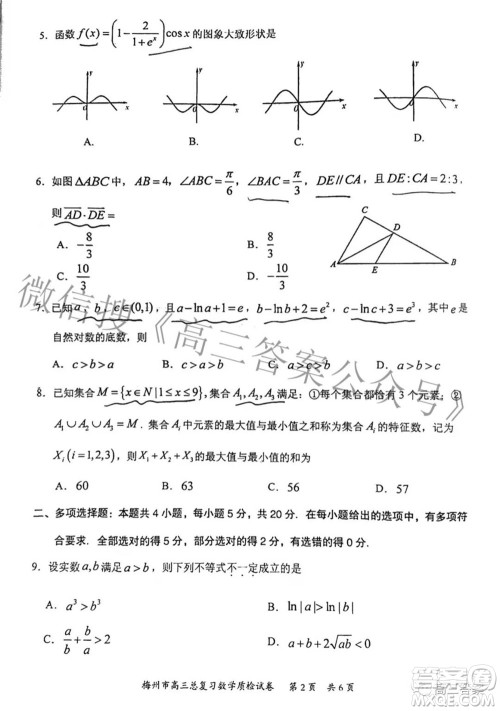 5. 函数 f(x)=(1-2/(1+e^x))cosx 的图象大致形状是
y y y y
x x x x
A. B. C. D.
6. 如图 ΔABC 中，AB=4，∠ABC=π/6，∠BAC=π/3，DE//CA，且 DE:CA=2:3.
则 AD·DE=
A. -8/3 B. 8/3
C. -10/3 D. 10/3
C D A E B
7. 已知 a、b、c∈(0,1)，且 a-lna+1=e，b-lnb+2=e²，c-lnc+3=e³，其中 e 是
自然对数的底数，则
A. c>b>a B. c>a>b C. a>b>c D. a>c>b
8. 已知集合 M={x∈N|1≤x≤9}，集合 A₁,A₂,A₃ 满足：①每个集合都恰有 3 个元素；②
A₁∪A₂∪A₃=M. 集合 Aᵢ 中元素的最大值与最小值之和称为集合 Aᵢ 的特征数，记为
Xᵢ(i=1,2,3)，则 X₁+X₂+X₃ 的最大值与最小值的和为
A. 60 B. 63 C. 56 D. 57
二、多项选择题：本题共 4 小题，每小题 5 分，共 20 分．在每小题给出的选项中，有多项符
合要求．全部选对的得 5 分，部分选对的得 2 分，有选错的得 0 分．
9. 设实数 a,b 满足 a>b，则下列不等式不一定成立的是
A. a³>b³ B. ln|a|>ln|b|
C. a/b+b/a>2 D. a+b-2√ab<0
梅州市高三总复习数学质检试卷 第 2 页 共 6 页
微信搜《高三答案公众号》
高三答案